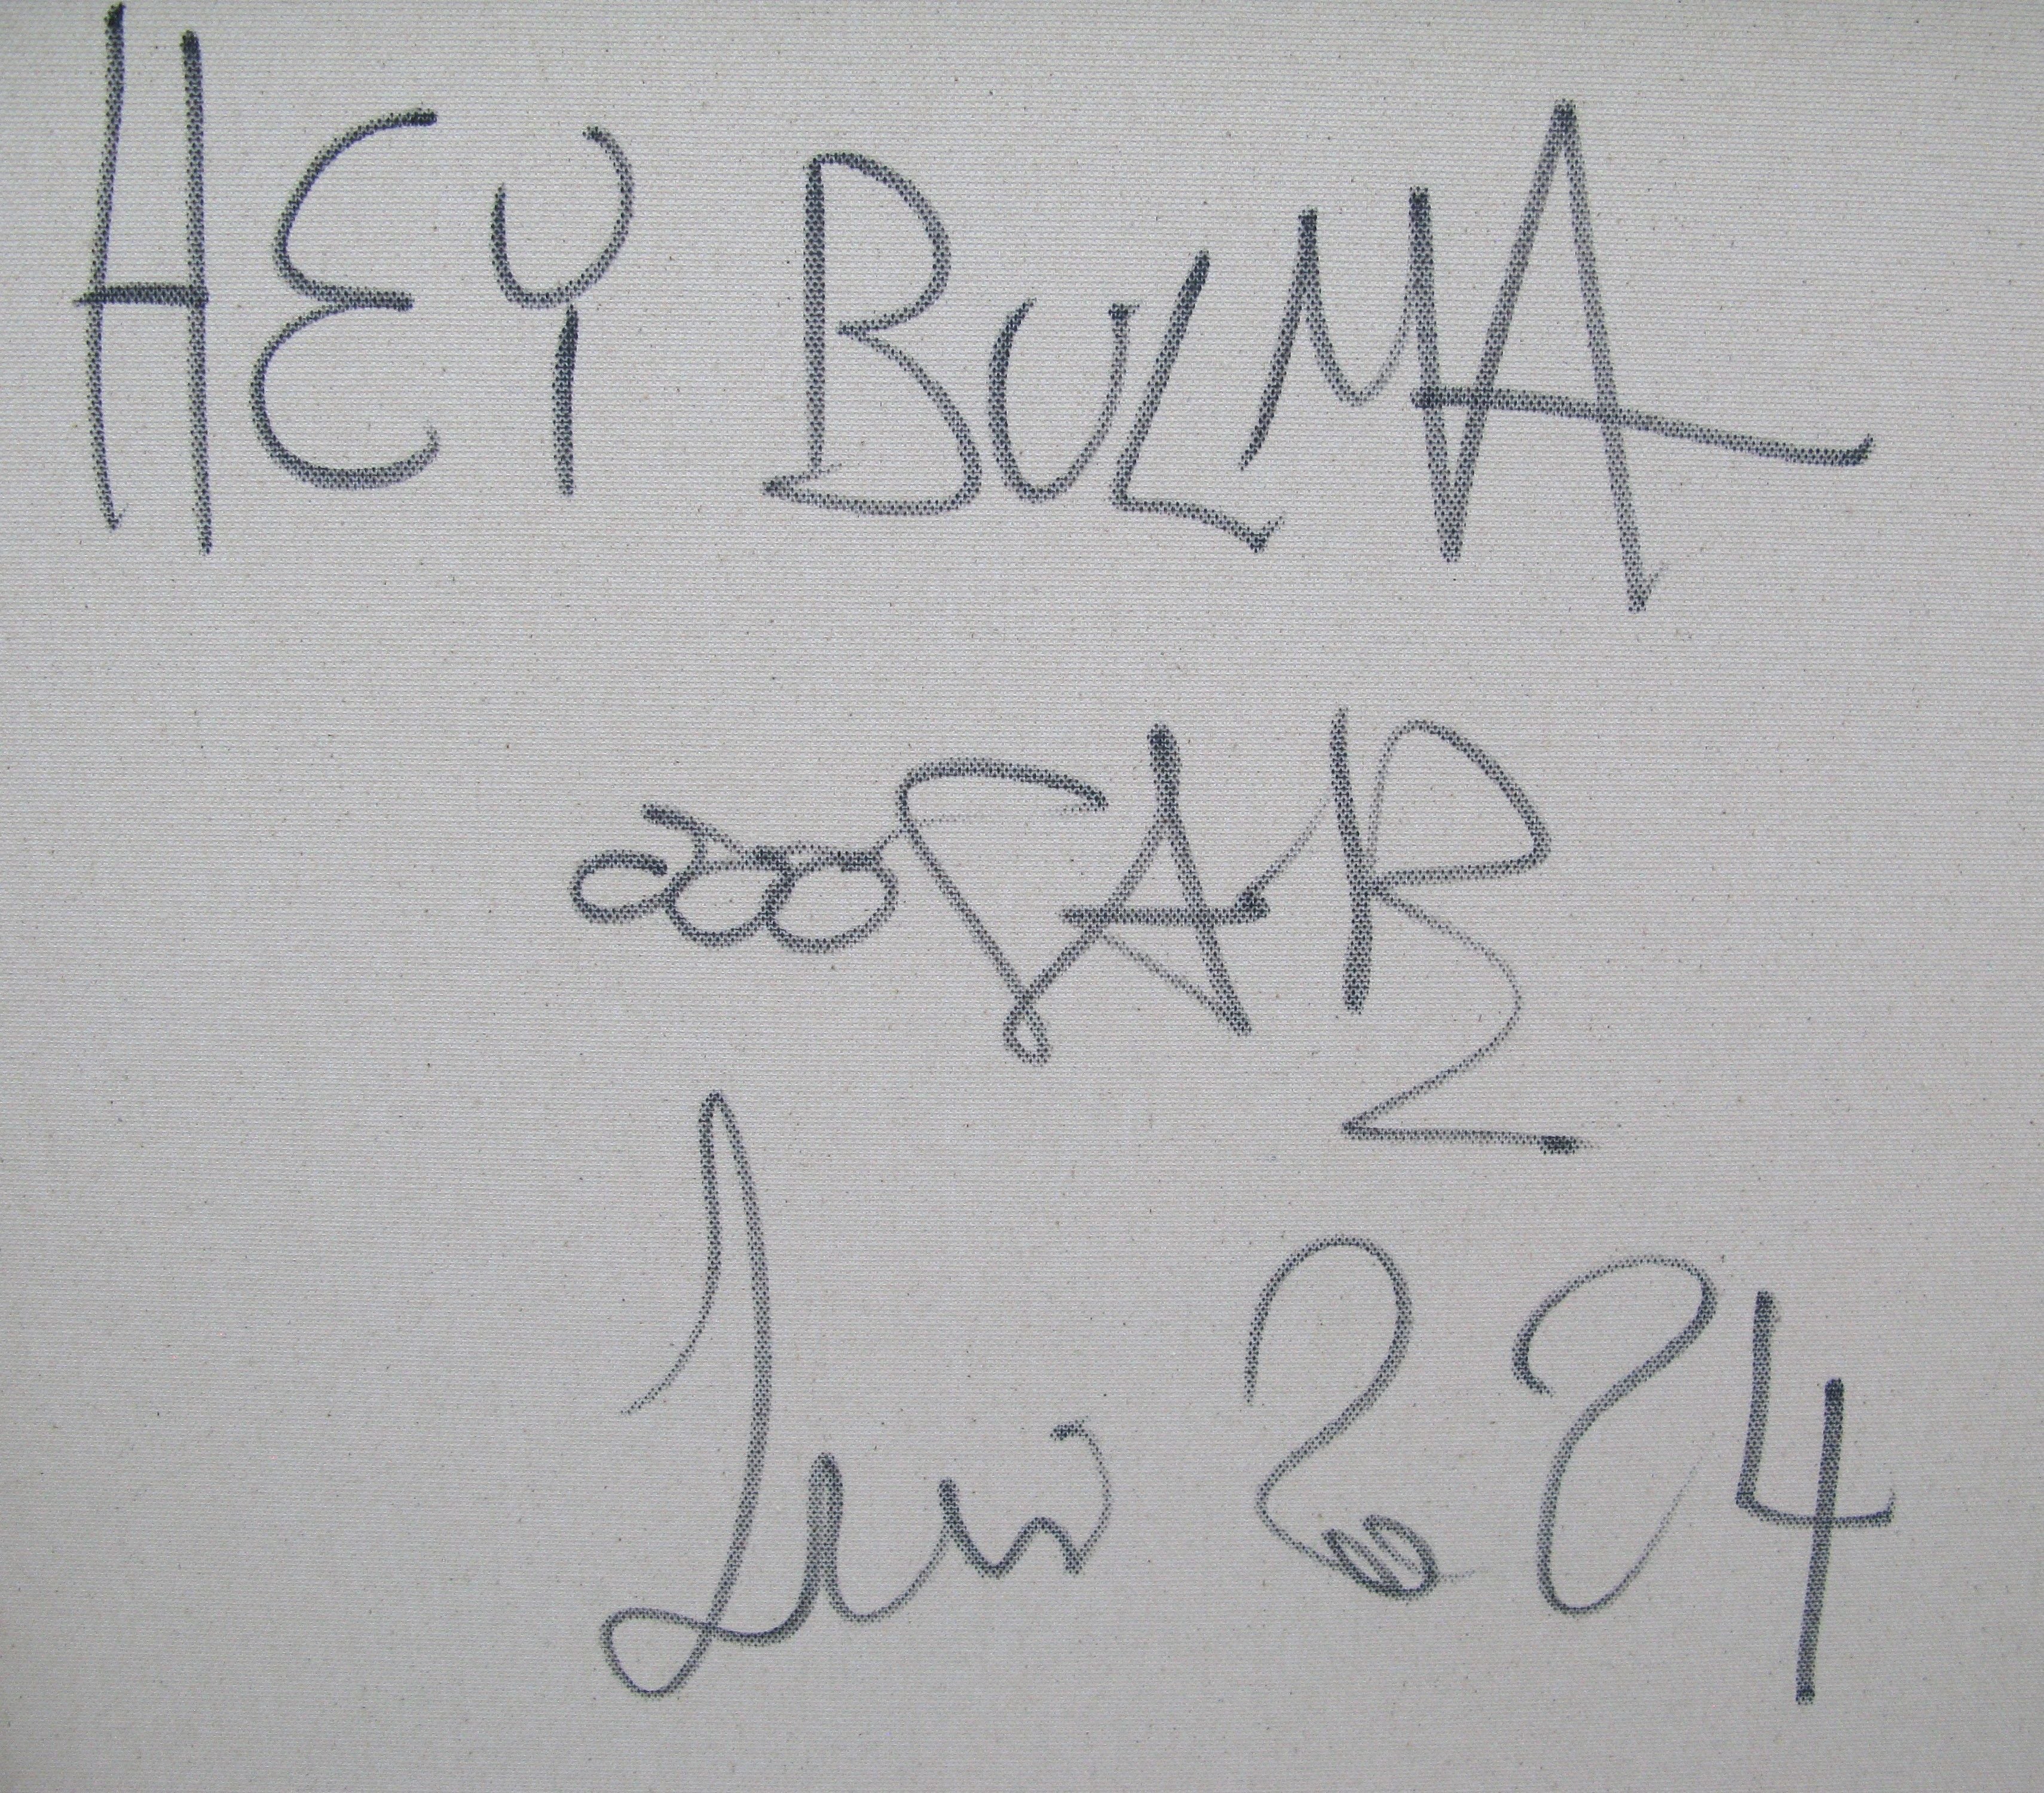 HEY BULMA
Jun 2024